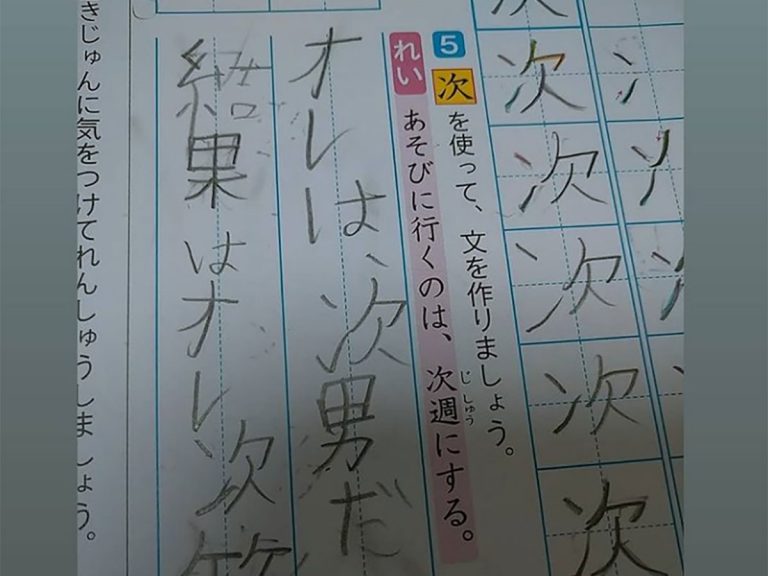 次
次
次
次
次
5 次を使って、文を作りましょう。
れい あそびに行くのは、次週にする。
じしゅう
オレは、次男だ
結果はオレ次
きじゅんに気をつけてれんしゅうしましょう。